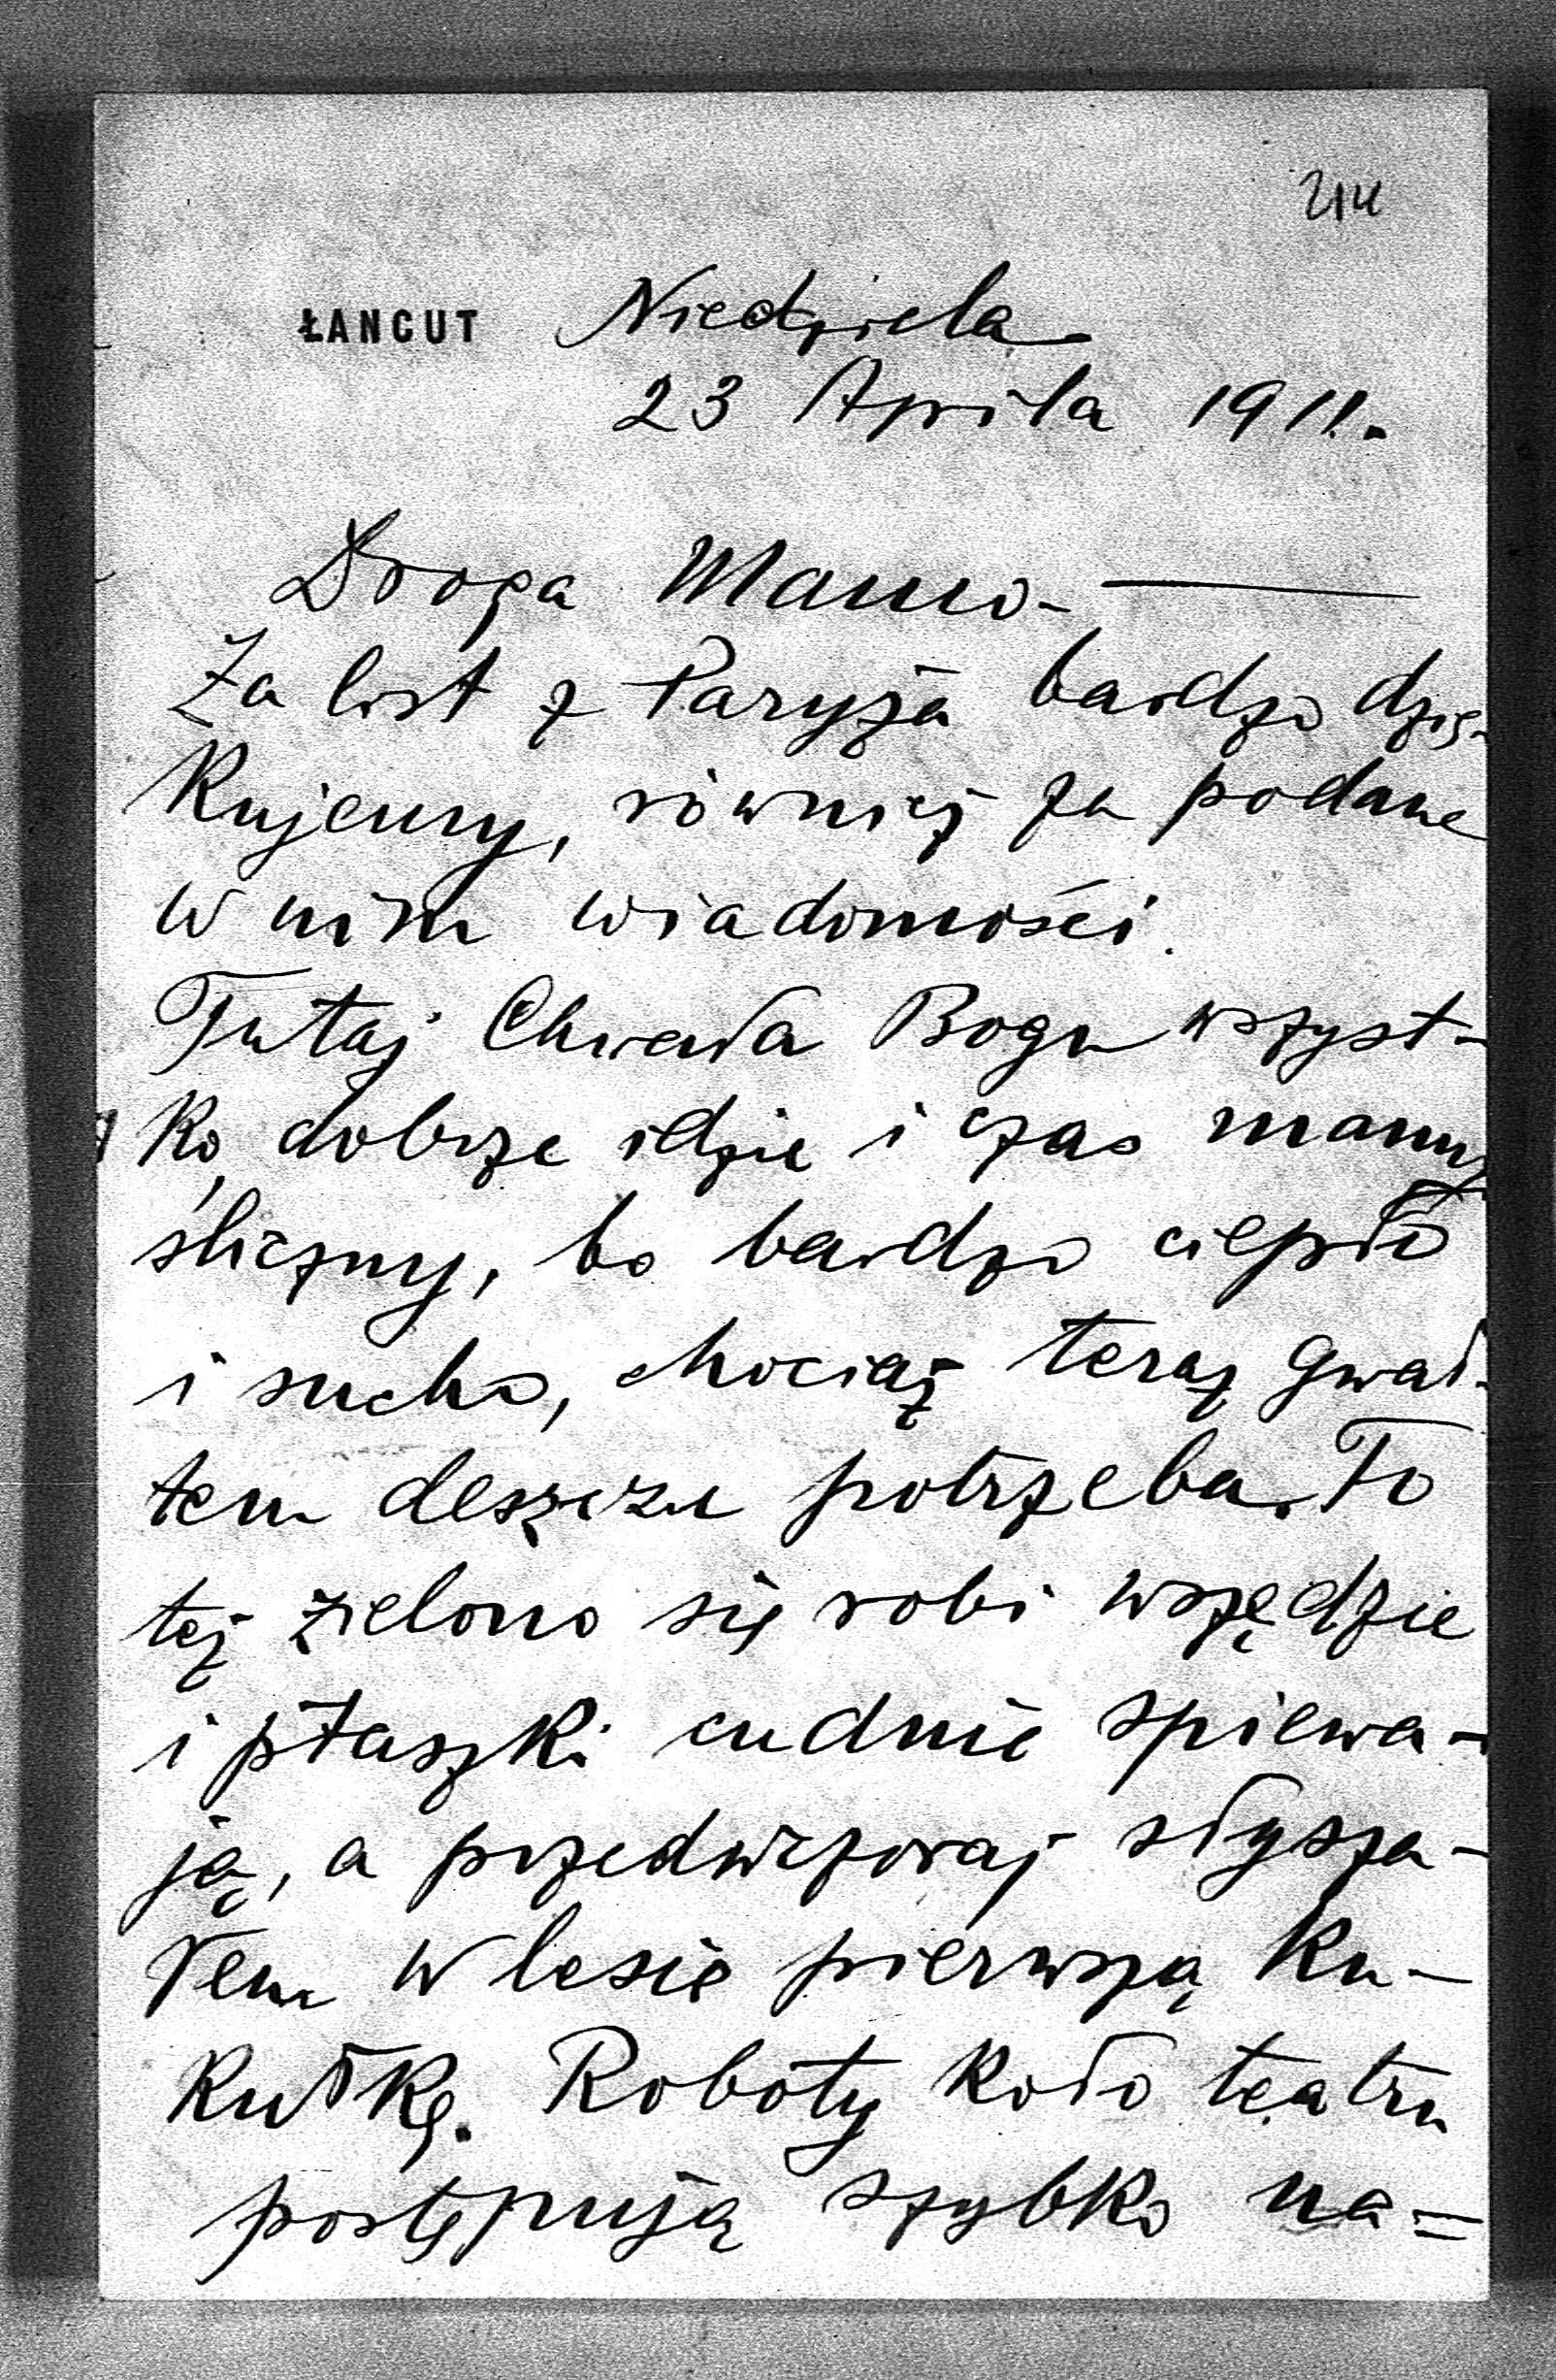 214
ŁANCUT Niedziela
23 Aprila 1911.
Droga Mamo- —
Za list z Paryża bardzo dzię-
kujemy, również za podane
w nim wiadomości.
Tutaj Chwała Bogu wszyst-
ko dobrze idzie i czas mamy
śliczny, bo bardzo ciepło
i sucho, chociaż teraz gwał-
tem deszczu potrzeba. To
też zielono się robi wszędzie
i ptaszki cudnie spiewa-
ją, a przedwczoraj słysza-
łem w lesie pierwszą ku-
kułkę. Roboty koło teatru
postępują szybko na=